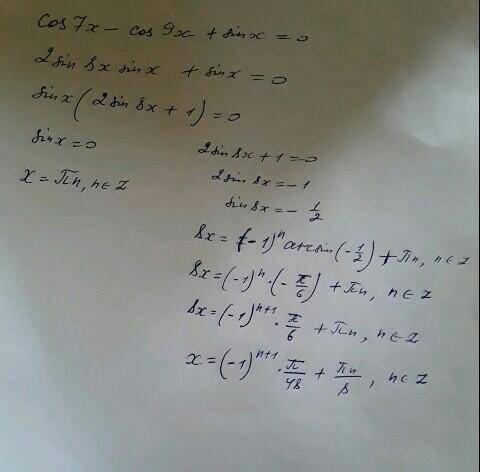 cos 7x - cos 9x + sin x = 0
2 sin 8x sin x + sin x = 0
sin x (2 sin 8x + 1) = 0
sin x = 0
x = πn, n ∈ Z
2 sin 8x + 1 = 0
2 sin 8x = -1
sin 8x = - 1/2
8x = (-1)^n arcsin(-1/2) + πn, n ∈ Z
8x = (-1)^n · (-π/6) + πn, n ∈ Z
8x = (-1)^{n+1} · π/6 + πn, n ∈ Z
x = (-1)^{n+1} · π/48 + πn/8, n ∈ Z